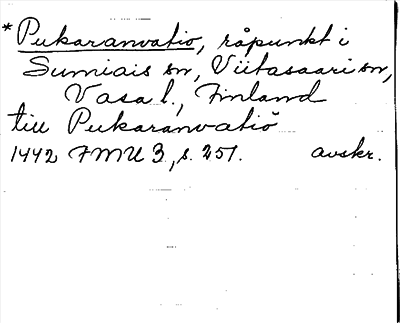 *Pukaranvatio, råpunkt i
Sumiais sn, Viitasaari sn,
Vasa l., Finland
till Pukaranvatiö
1442 FMU 3, s. 251. avskr.